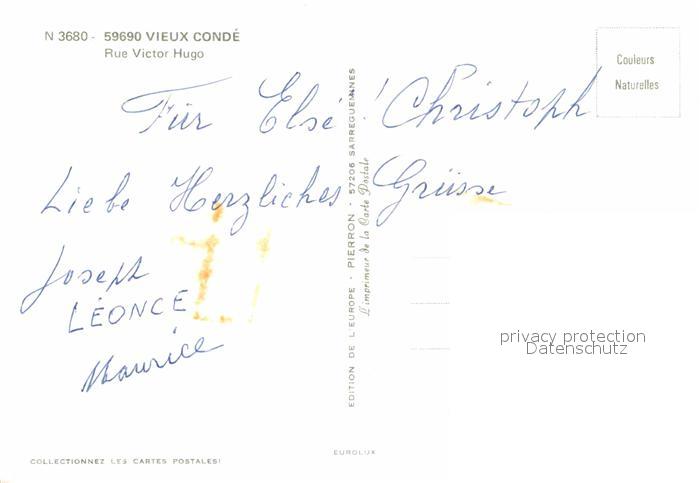 N 3680 - 59690 VIEUX CONDÉ
Rue Victor Hugo
Couleurs
Naturelles
Für Elsé ! Christoph
Liebe Herzliches Grüsse
Joseph
LÉONCE
Maurice
EDITION DE L'EUROPE - PIERRON - 57206 SARREGUEMINES
L'imprimeur de la Carte Postale
privacy protection
Datenschutz
EUROLUX
COLLECTIONNEZ LES CARTES POSTALES!